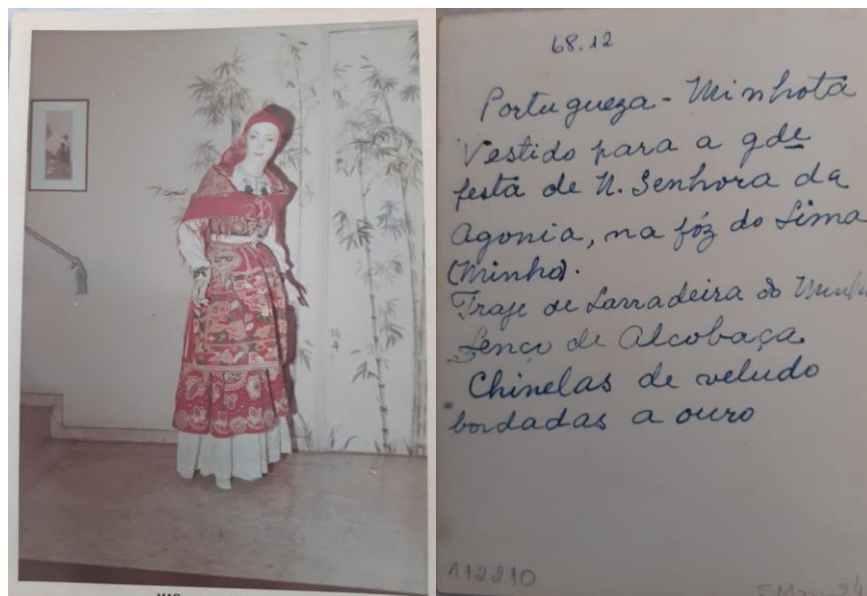 MAR
68.12
Portugueza - Minhota
Vestido para a gde
festa de N. Senhora da
Agonia, na fóz do Lima
(Minho).
Traje de Lavradeira do
Lenço de Alcobaça
Chinelas de veludo
bordadas a ouro
112210